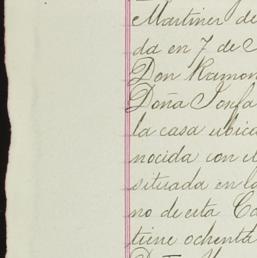 Martinez de
da en 7 de
Don Ramon
Doña Josefa
la casa ubica
nocida con el
situada en la
no de esta Ca
tiene ochenta